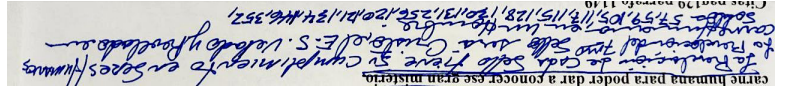 carne humana para poder dar a conocer ese gran misterio
La Revelación de Cada Sello tiene su Cumplimiento en Seres Humanos
La Revelación del 7mo Sello será Cristo, el E.S. Velado y Revelado en
carne humana en un hombre
57,59,105,117,115,128,130,131,256,120,121,134,146,352,
Citas pag120 parrafo 1140